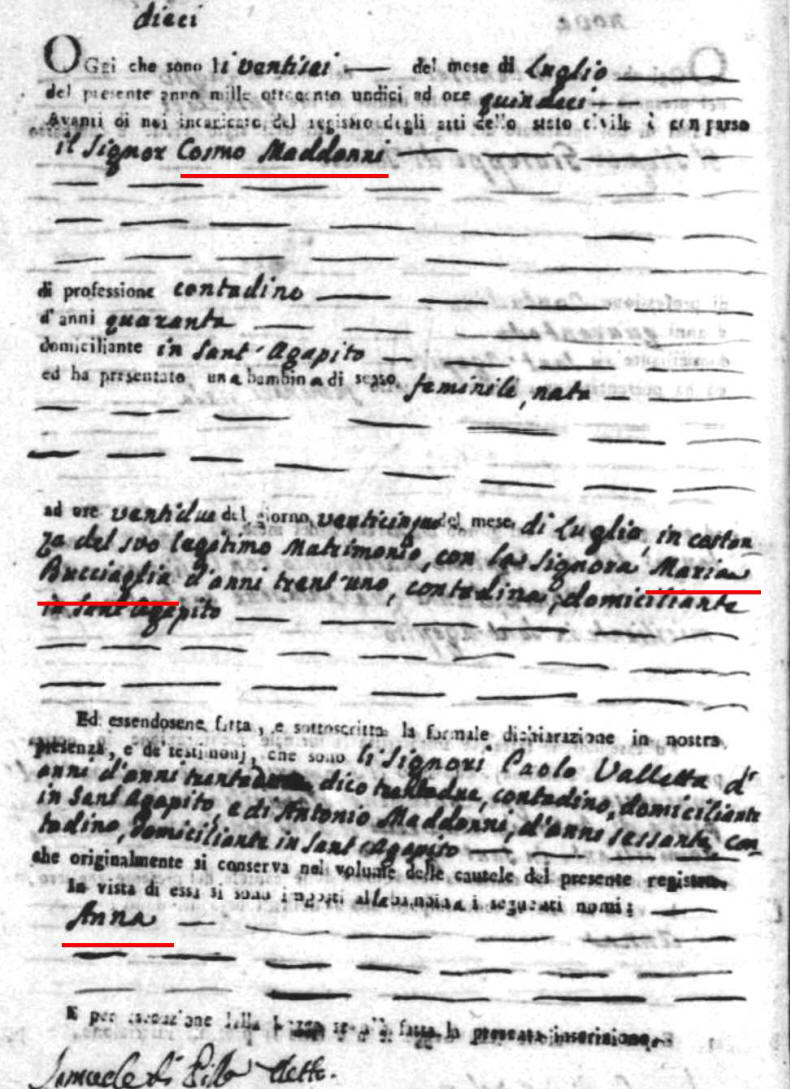 dieci
OGgi che sono li vantisei del mese di Luglio
del presente anno mille ottocento undici ad ore quindeci
Avanti di noi incaricato del registro degli atti dello stato civile è comparso
il Signor Cosmo Maddonni
di professione contadino
d'anni quaranta
domiciliante in Sant'Agapito
ed ha presentato una bambina di sesso feminile, nata
ad ore vantidue del giorno vanticinque del mese di Luglio, in costan
za del suo legitimo Matrimonio, con la Signora Maria
Bucciaglia d'anni trent'uno, contadina, domiciliante
in Sant'Agapito
Ed essendosene fatta, e sottoscritta la formale dichiarazione in nostra
presenza, e de' testimonj, che sono li Signori Paolo Valletta d'
anni d'anni trentadue dico trentadue, contadino, domiciliante
in Sant'Agapito, e di Antonio Maddonni, d'anni sessanta con
tadino, domiciliante in Sant'Agapito
che originalmente si conserva nel volume delle cautele del presente registro.
In vista di essa si sono imposti alla bambina i seguenti nomi:
Anna
E per esecuzione della legge se n'è fatta la presente inscrizione.